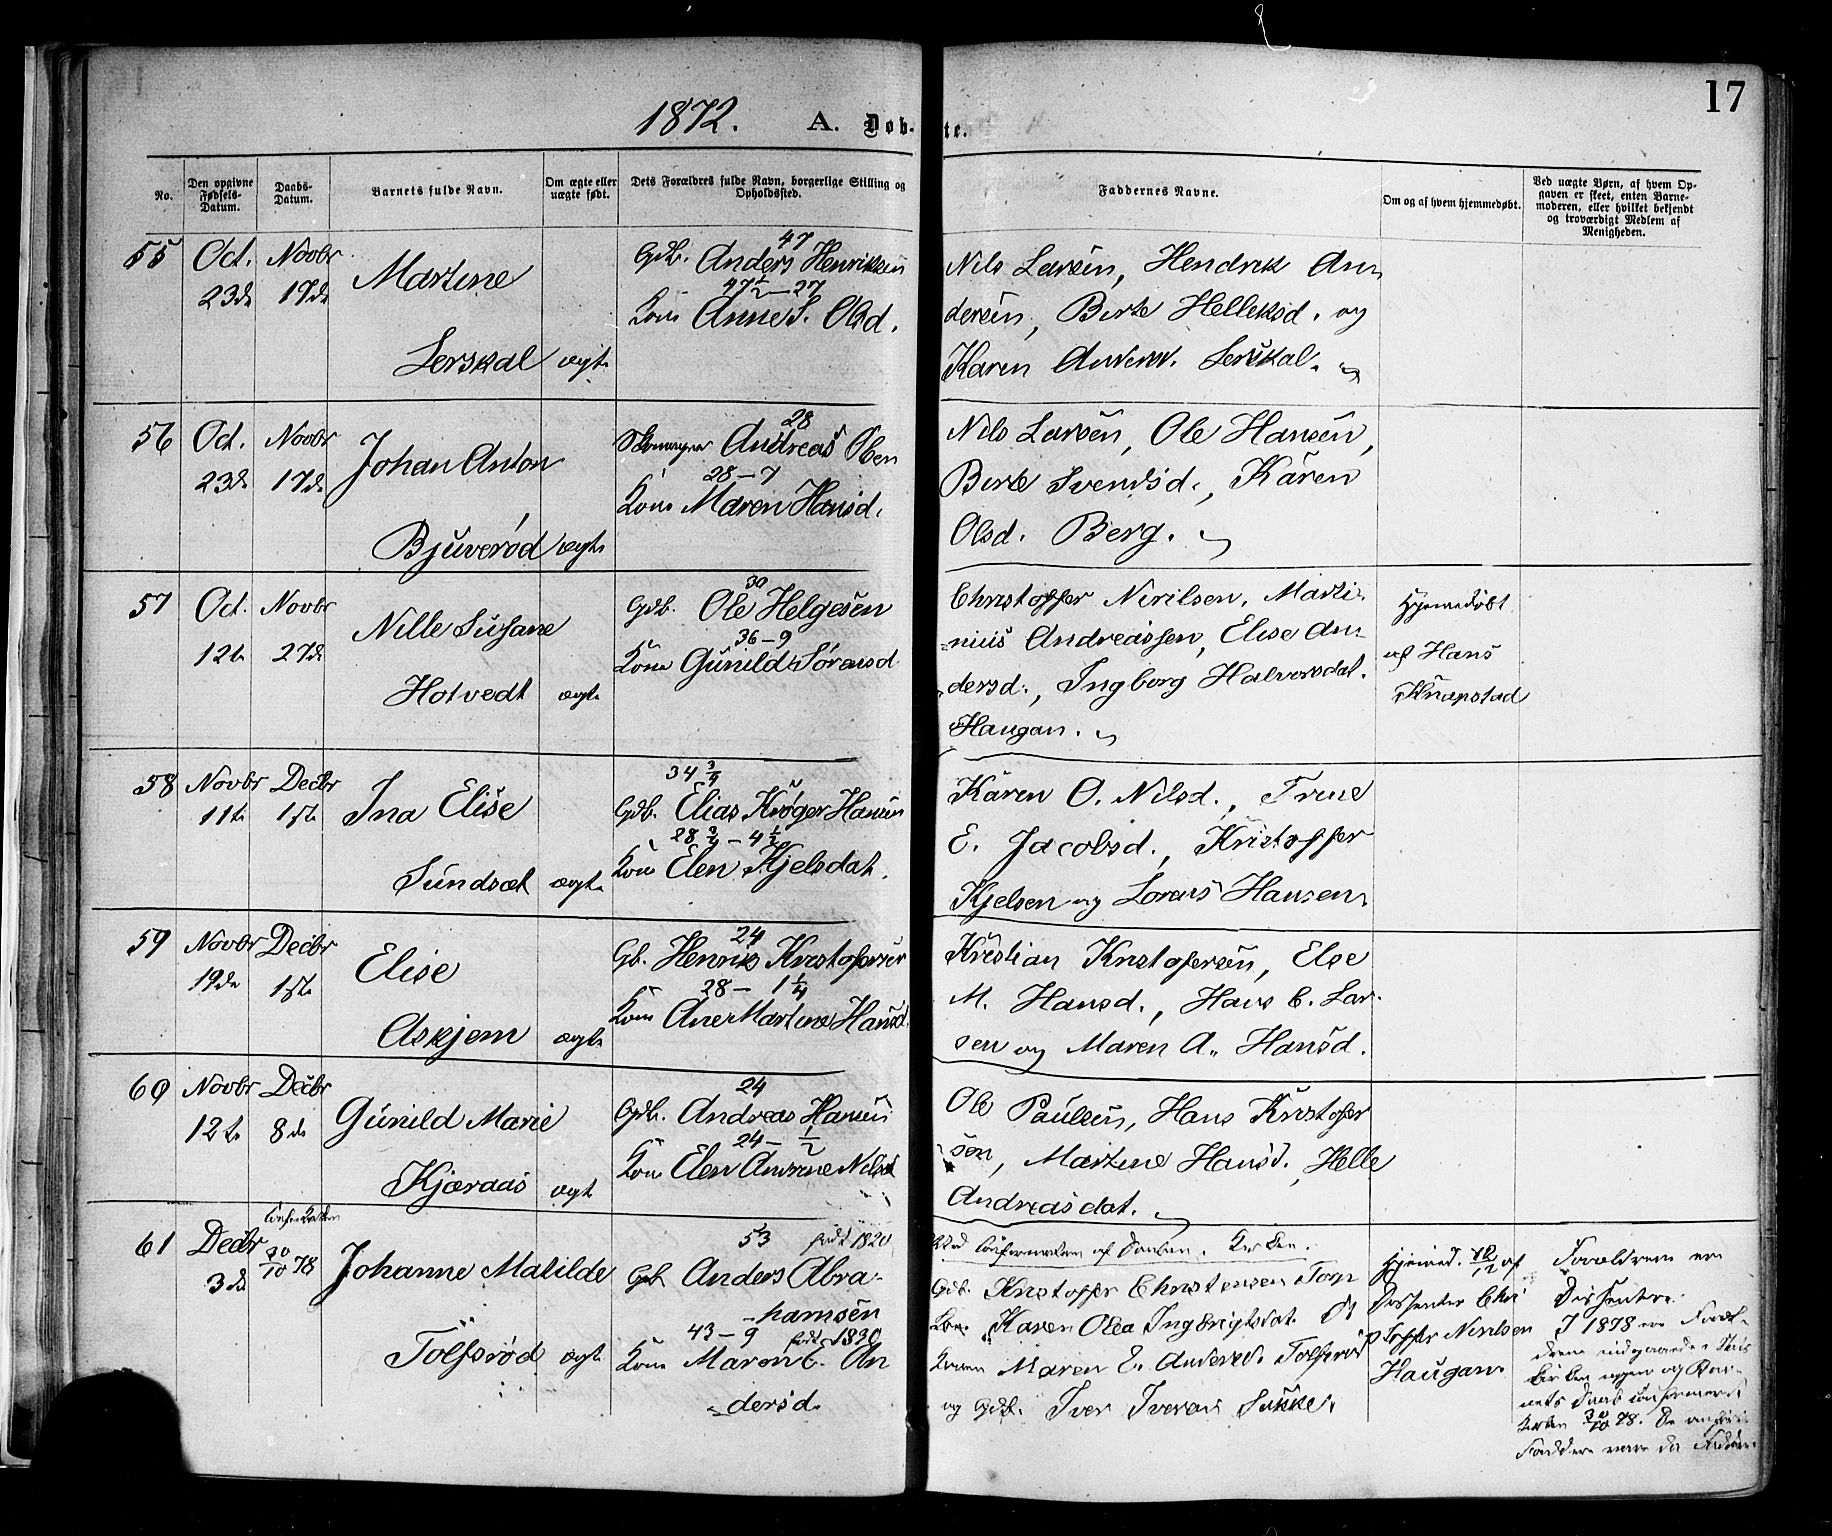 17
1872. A. Døb-te.
No.
Den opgivne Fødsels-Datum.
Daabs-Datum.
Barnets fulde Navn.
Om ægte eller uægte født.
Dets Forældres fulde Navn, borgerlige Stilling og Opholdssted.
Faddernes Navne.
Om og af hvem hjemmedøbt.
Ved uægte Børn, af hvem Opgaven er skeet, enten Barnemoderen, eller hvilket bekjendt og troværdigt Medlem af Menigheden.
55 Oct. 23de Novbr 17de
Martine
Lerskal ægte
47
Gdb. Anders Henriksen
47½—27
Kone Anne S. Olsd.
Nils Larsen, Hendrik An
dersen, Berte Helleksd. og
Karen Andersd. Lerskal.
56 Oct. 23de Novbr 17de
Johan Anton
Bjuverød ægte
28
Skomager Andreas Olsen
28—7
Kone Maren Hansd.
Nils Larsen, Ole Hansen,
Berte Svendsd., Karen
Olsd. Berg.
57 Oct. 12te Novbr 27de
Nille Susane
Hotvedt ægte
30
Gdb. Ole Helgesen
36—9
Kone Gunild Sørensd
Christoffer Nirilsen, Marti-
nius Andreassen, Elise An
dersd., Ingborg Halvorsdat.
Haugan.
Hjemmedøbt
af Hans
Knapstad
58 Novbr 11te Decbr 1ste
Ina Elise
Sundsæt ægte
34¾
Gdb. Elias Krøger Hansen
28¾—4½
Kone Elen Kjelsdat.
Karen O. Nilsd., Trine
E. Jacobsd., Kristoffer
Kjelsen og Lorens Hansen.
59 Novbr 19de Decbr 1ste
Elise
Askjem ægte
24
Gb. Henrik Kristofersen
28—1¼
Kone Ane Martine Hansd
Kristian Kristofersen, Else
M. Hansd., Hans C. Lar-
sen og Maren A. Hansd.
60 Novbr 12te Decbr 8de
Gunild Marie
Kjæraas ægte
24
Gdb. Andreas Hansen
24—½
Kone Elen Andrine Nilsd
Ole Paulsen, Hans Kristofer
sen, Martine Hansd., Helle
Andreasdat.
61 Decbr 3de
30/10 78
Johanne Matilde
Tolfsrød ægte
53 født 1820
Gdb Anders Abra-
hamsen
43—9 født 1830
Kone Maren E. An
dersd.
Ved Confirmation af Daaben i Kirken.
Gdb. Kristoffer Christensen Torp
Kone Karen Olea Ingbrigtsdat. og
Konen Maren E. Andersd. Tolfsrød
og Gdb. Iver Iversen Sukke.
Hjemmed. af
Dissenter Chri
stoffer Nirilsen
Haugan
Forældrene ere
Dissentere.
I 1878 ere Foræl-
drene indgaaede i Stats
kirken igjen og Bar-
nets Daab confirmeret i
Kirken 30/10 78. De anførte
Faddere vare da Faddere